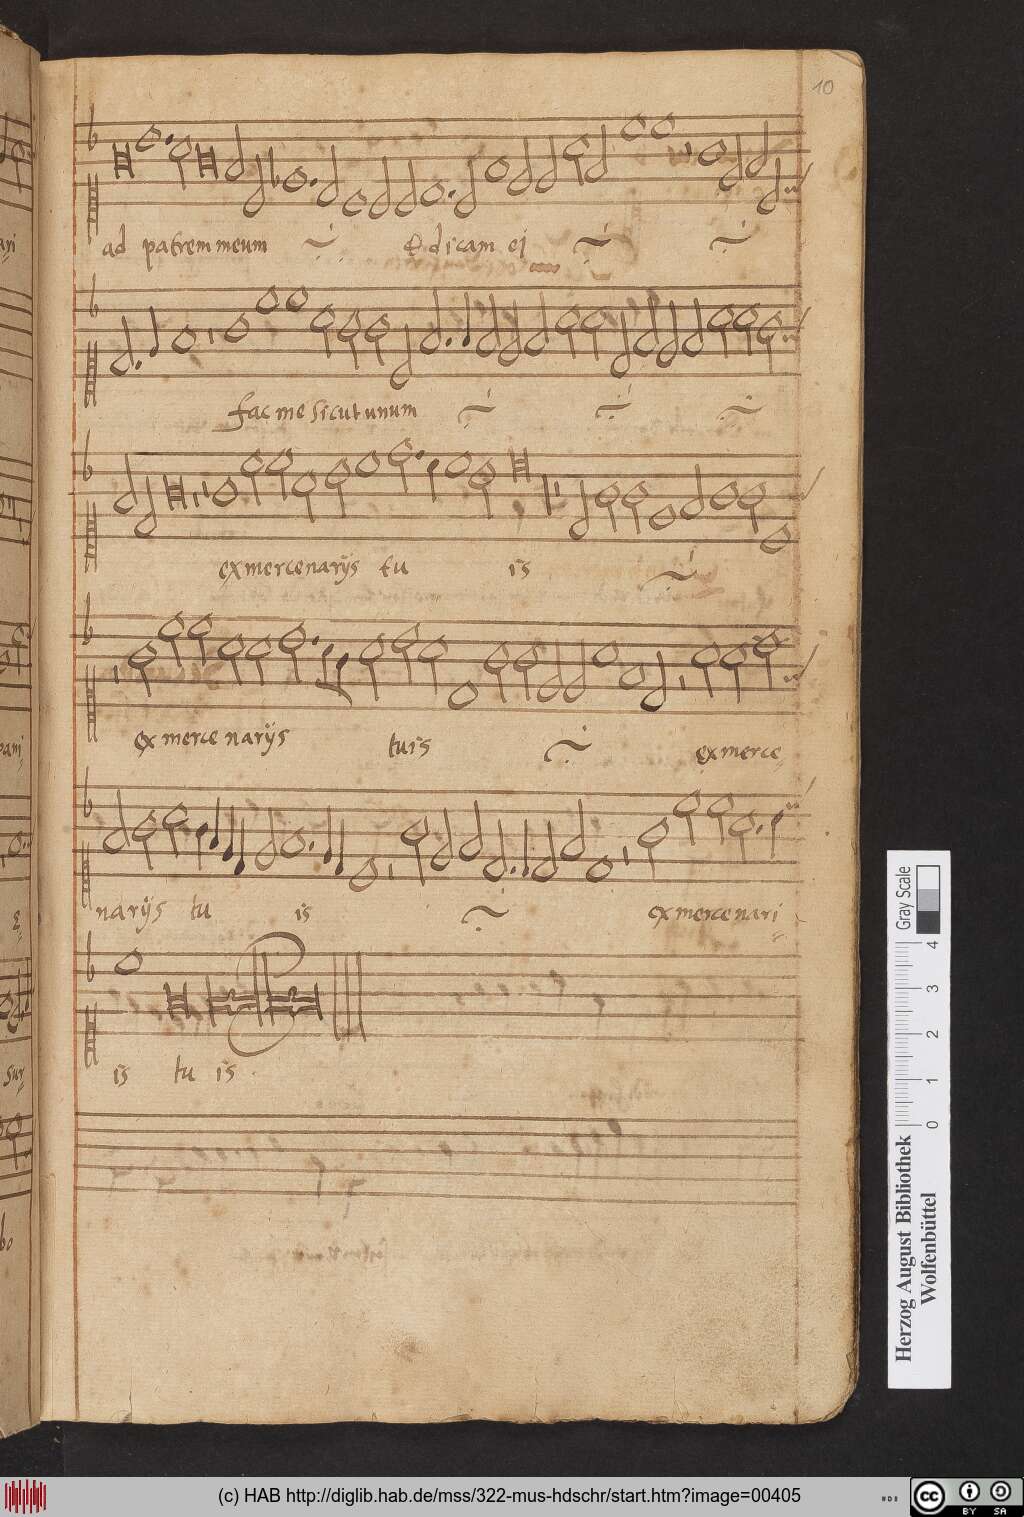 10
ad patrem meum Et dicam ej
fac me sicut unum
ex mercenarijs tu is
ex mercenarijs tuis ex merce
narijs tu is ex mercenari
is tu is
Herzog August Bibliothek
Wolfenbüttel
Gray Scale
0 1 2 3 4
(c) HAB http://diglib.hab.de/mss/322-mus-hdschr/start.htm?image=00405
cc BY SA